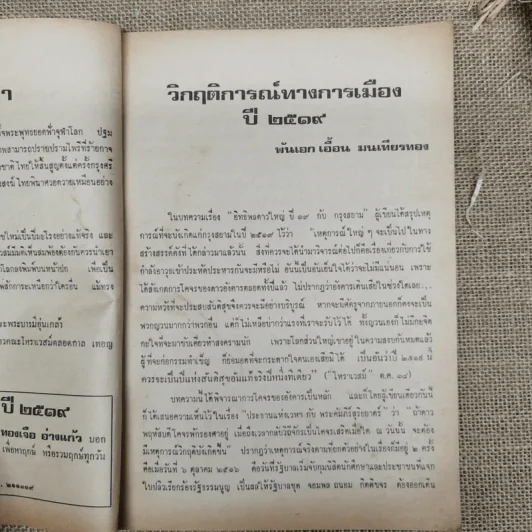 า
ตั้งพระพุทธยอดฟ้าจุฬาโลก ปฐม
ปี ๒๕๑๙
ทองเจือ อ่างแก้ว บอก
เพื่อหาฤกษ์ หรือรวมฤกษ์ทุกวัน
วิกฤติการณ์ทางการเมือง
ปี ๒๕๑๙
พันเอก เอื้อน มนเทียรทอง
ในบทความเรื่อง "อิทธิพลดาวใหญ่ ปี ๑๙ กับ กรุงสยาม" ผู้เขียนได้สรุปเหตุ
การณ์ที่จะบังเกิดแก่กรุงสยามในปี ๒๕๑๙ ไว้ว่า "เหตุการณ์ใหญ่ ๆ จะเป็นไปในทาง
สร้างสรรค์ดังที่ได้กล่าวมาแล้วนั้น สิ่งที่ควรจะได้นำมาวิจารณ์ต่อไปก็คือเรื่องเกี่ยวกับการใช้
กำลังอาวุธเข้าประหัตประหารกันจะมีหรือไม่ อันนี้เป็นอันเย็นใจได้ว่าจะไม่มีแน่นอน เพราะ
ได้สังเกตการโคจรของดาวอังคารตลอดทั้งปีแล้ว ไม่ปรากฏว่าอังคารเดินเสียในช่วงใดเลย...
ความหวังที่จะประสบสันติสุขจึงควรจะมีอย่างบริบูรณ์ หากจะมีศัตรูจากภายนอกก็คงจะเป็น
พวกญวนมากกว่าพวกอื่น แต่ก็ไม่เหลือบ่ากว่าแรงที่เราจะรับไว้ได้ ทั้งญวนเองก็ไม่มีกะจิต
กะใจที่จะมาขับเคี่ยวทำสงครามนัก เพราะโลกส่วนใหญ่เขาอยู่ในความสงบกันหมดแล้ว
ผู้ที่จะก่อกรรมทำเข็ญ ก็ย่อมอดที่จะกระดากใจตนเองเสียมิได้ เป็นอันว่าปี ๒๕๑๙ นี้
ควรจะเป็นปีแห่งสันติสุขอันแท้จริงปีหนึ่งทีเดียว" ("โหราเวสม์" ต.ค. ๑๘)
บทความนี้ได้พิจารณาการโคจรของอังคารเป็นหลัก และก็โดยผู้เขียนเดียวกันนี้
ก็ได้เสนอความเห็นไว้ในเรื่อง "ประธานแห่งเวหา กับ พระคัมภีร์สุริยอาตร์" ว่า "ถ้าดาว
พฤหัสบดีโคจรพักรองศาอยู่ เมื่อถึงเวลากลับวิถีจักรเป็นโคจรเสริดเมื่อใด ณ วันนั้น จะต้อง
มีเหตุการณ์วิกฤตบังเกิดขึ้น" ปรากฏว่าเหตุการณ์จริงตามที่ยกตัวอย่างในเรื่องก็มีอยู่ ๒ ครั้ง
คือเมื่อวันที่ ๖ ตุลาคม ๒๕๑๖ คือวันที่รัฐบาลเริ่มจับกุมนิสิตนักศึกษาและประชาชนที่แจก
ใบปลิวเรียกร้องรัฐธรรมนูญ เป็นผลให้รัฐบาลชุด จอมพล ถนอม กิตติขจร ต้องออกเดิน